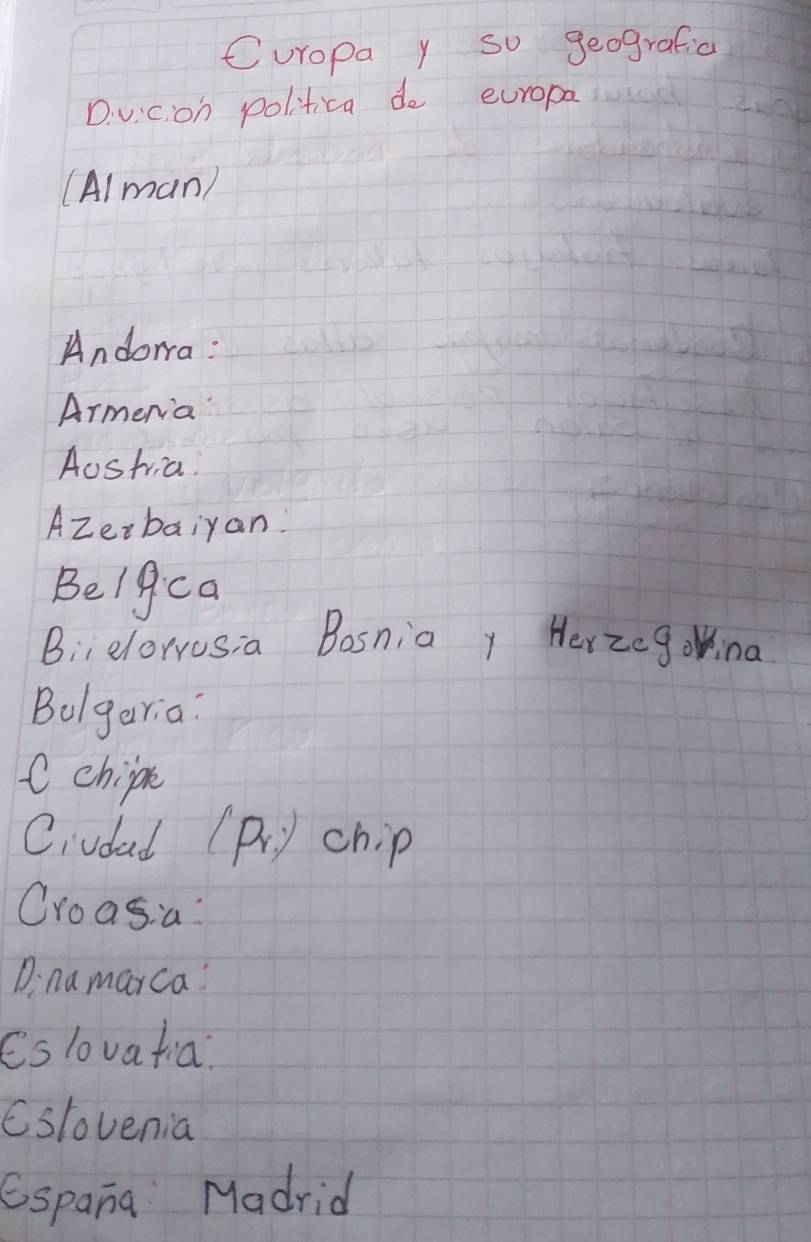 Europa y su geografia
Divicion politica de europa
(Alman)
Andorra:
Armenia:
Austria:
Azerbaiyan:
Belgca
Biielorrusia Bosnia y Herzegovina
Bulgaria:
C chipre
Ciudad (Pri) chip
Croasia:
Dinamarca:
Eslovatia:
Eslovenia
España: Madrid